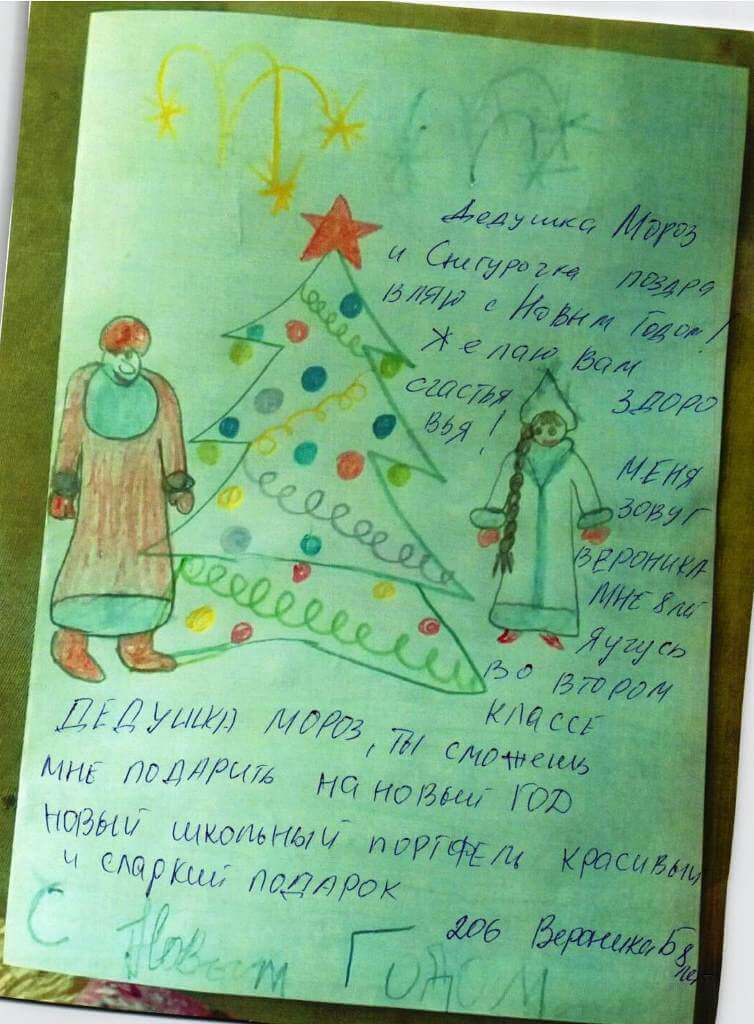 Дедушка Мороз
и Снегурочка поздра
вляю с Новым Годом!
Желаю Вам
счастья здоро
вья!
МЕНЯ
ЗОВУТ
ВЕРОНИКА
МНЕ 8 лет
Я учусь
ВО ВТОРОМ
КЛАССЕ
ДЕДУШКА МОРОЗ, ТЫ сможешь
МНЕ ПОДАРИТЬ НА НОВЫЙ ГОД
НОВЫЙ ШКОЛЬНЫЙ ПОРТФЕЛЬ КРАСИВЫЙ
и сларкий ПОДАРОК
206 Вероника Б 8
лет
С Новым Годом